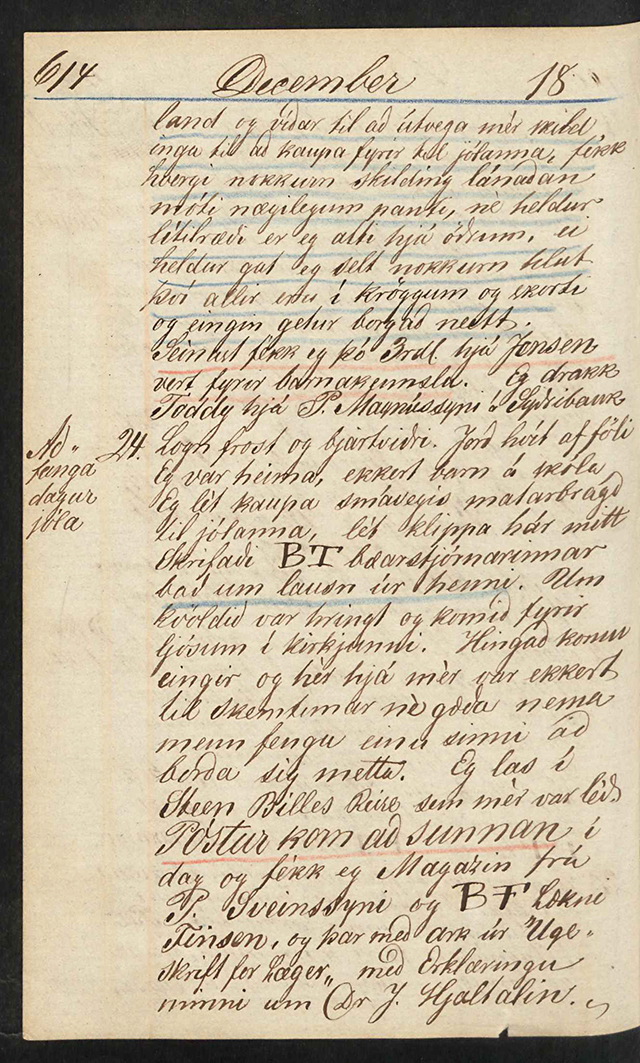 614 December 18
land og víðar til að útvega mér skild
inga til að kaupa fyrir til jólanna, fékk
hvergi nokkurn skilding lánaðan
móti nægilegum panti, nè heldur
lítilræði er eg átti hjá öðrum, ei
heldur gat eg selt nokkurn hlut
því allir eru í kröggum og skorti
og eingin getur borgað neitt.
Seinast fékk eg þó 3rdl. hjá Jonsen
vert fyrir barnakennslu. Eg drakk
Toddy hjá P. Magnússyni í Syðribauk
Að-
fanga
dagur
jóla
24. Logn frost og bjartviðri. Jörð hvít af föli
Eg var heima, ekkert barn á skóla
Eg lét kaupa smávegis matarbragð
til jólanna, lét klippa hár mitt
Skrifaði BT bæarstjórnarinnar
bað um lausn úr henni. Um
kvöldið var hringt og komið fyrir
ljósum í kirkjunni. Hingað komu
eingir og hér hjá mér var ekkert
til skemtunar nè gæða nema
menn fengu einu sinni að
borða sig metta. Eg las í
Steen Billes Reise sem mér var léð.
Póstur kom að sunnan í
dag og fékk eg Magazin frá
P. Sveinssyni og BF Lækni
Finsen, og þar með ark úr "Uge-
skrift for Læger„ með Erklæringu
minni um Dr J. Hjaltalin.